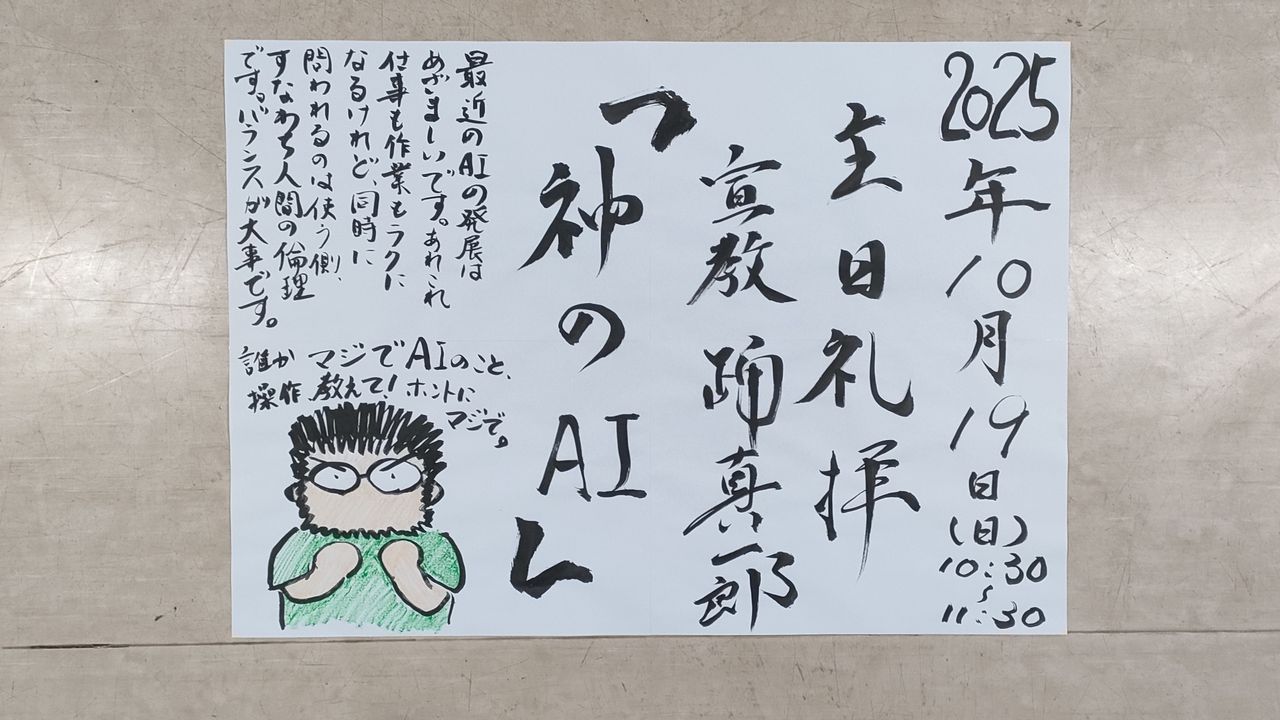 2025年10月19日(日)10:30~11:30
主日礼拝
宣教 踊真一郎
「神のAI」
最近のAIの発展は
めざましいです。あれこれ
仕事も作業もラクに
なるけれど、同時に
問われるのは使う側、
すなわち人間の倫理
です。バランスが大事です。
誰か マジでAIのこと、
操作、教えて!ホントに
マジで。